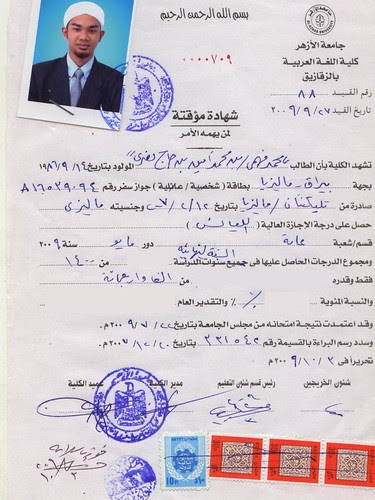 بسم الله الرحمن الرحيم
جامعة الأزهر
كلية اللغة العربية
بالزقازيق
٠٠٠٠٧٠٩
رقم القيد ٨٨
تاريخ القيد ٢٠٠٩/٩/٢٧
شهادة مؤقتة
لمن يهمه الأمر
تشهد الكلية بأن الطالب / محمد بن محمد أمين بن حاج المولود بتاريخ ١٩٨٦/٩/١٤
بجهة بيراق - ماليزيا بطاقة (شخصية / عائلية) جواز سفر رقم A١٦٥٣٩٠٩٤
صادرة من ماليزيا بتاريخ ٢٠٠٧/٢/١٢ وجنسيته ماليزى
حصل على درجة الإجازة العالية (الليسانس)
قسم/شعبة عامة دور مايو سنة ٢٠٠٩
السنة النهائية
ومجموع الدرجات الحاصل عليها فى جميع سنوات الدراسة ١٤٠٠
فقط وقدره ألفا وأربعمائة
والنسبة المئوية ٪ والتقدير العام
وقد اعتمدت نتيجة امتحانه من مجلس الجامعة بتاريخ ٢٠٠٩/٧/٢٢م
وسدد رسم البراءة بالقسيمة رقم ٣٣١٥٤٢ بتاريخ ٢٠٠٧/١٢/٢٠م
تحريرا فى ٢٠٠٩/١٠/٣م
شئون الخريجين
رئيس قسم شئون التعليم
مدير الكلية
عميد الكلية